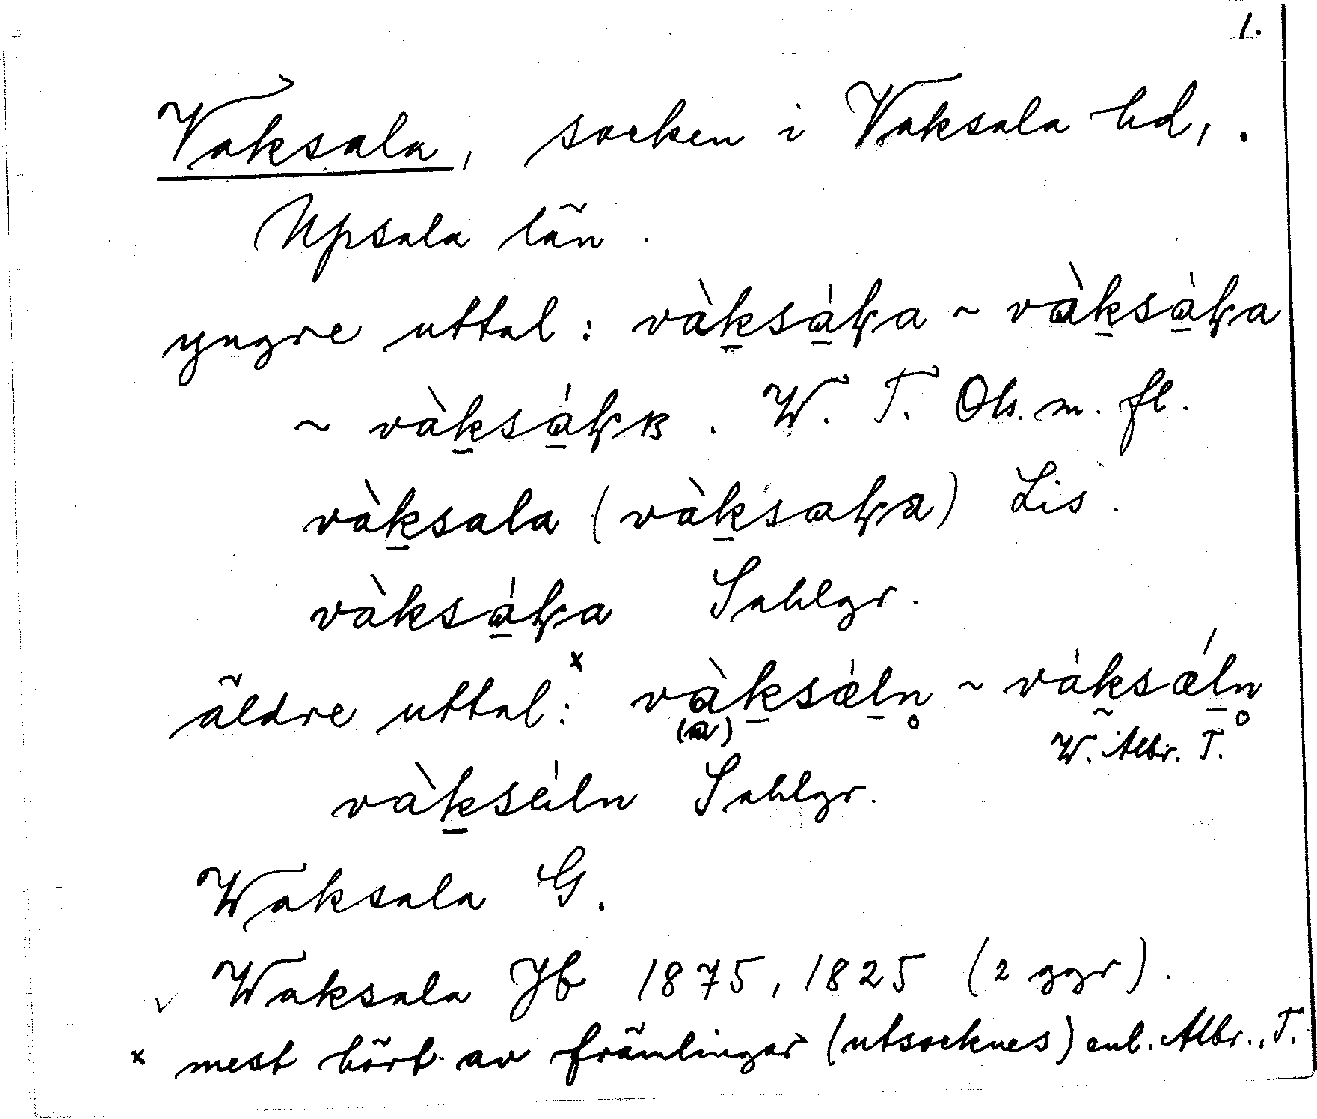 1.
Vaksala, socken i Vaksala hd,.
Upsala län.
yngre uttal: và̱ksàła ~ và̱ksàła
~ và̱ksàłʙ. W. T. Ols. m. fl.
và̱ksala (và̱ksała) Lis.
vàksàła Sahlgr.
äldre uttal:x và̱ksæ̀ln̥ ~ vàksǽln̥
(a) W. Albr. T.
và̱ksæ̀ln Sahlgr.
Waksala G.
v Waksala Jb 1875, 1825 (2 ggr).
x mest hört av främlingar (utsocknes) enl. Albr., T.